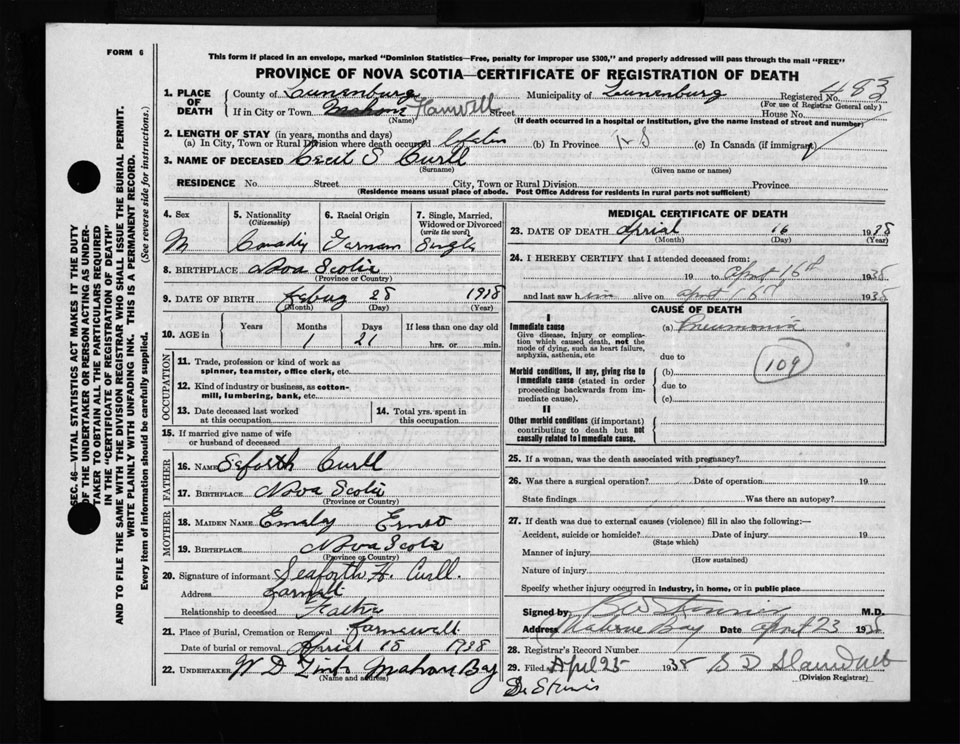 FORM 6
This form if placed in an envelope, marked "Dominion Statistics—Free, penalty for improper use $300," and properly addressed will pass through the mail "FREE"
PROVINCE OF NOVA SCOTIA—CERTIFICATE OF REGISTRATION OF DEATH
1. PLACE OF DEATH
County of Lunenburg Municipality of Lunenburg Registered No. 483
(For use of Registrar General only)
If in City or Town Street House No.
(Name) (If death occurred in a hospital or institution, give the name instead of street and number)
2. LENGTH OF STAY (in years, months and days)
(a) In City, Town or Rural Division where death occurred (b) In Province (c) In Canada (if immigrant)
3. NAME OF DECEASED Cecil S Curll
(Surname) (Given name or names)
RESIDENCE No. Street City, Town or Rural Division Province
(Residence means usual place of abode. Post Office Address for residents in rural parts not sufficient)
4. Sex M
5. Nationality (Citizenship)
6. Racial Origin
7. Single, Married, Widowed or Divorced (write the word) Single
8. BIRTHPLACE Nova Scotia
(Province or Country)
9. DATE OF BIRTH 28 1918
(Month) (Day) (Year)
10. AGE in Years Months Days If less than one day old
1 21 hrs. or min.
OCCUPATION
11. Trade, profession or kind of work as spinner, teamster, office clerk, etc.
12. Kind of industry or business, as cotton-mill, lumbering, bank, etc.
13. Date deceased last worked at this occupation
14. Total yrs. spent in this occupation
15. If married give name of wife or husband of deceased
FATHER
16. NAME Seforth Curll
17. BIRTHPLACE Nova Scotia
(Province or Country)
MOTHER
18. MAIDEN NAME Emaly Ernst
19. BIRTHPLACE Nova Scotia
(Province or Country)
20. Signature of informant Seaforth H. Curll.
Address
Relationship to deceased Father
21. Place of Burial, Cremation or Removal
Date of burial or removal 18 1938
22. UNDERTAKER W D Mahone Bay
(Name and address)
MEDICAL CERTIFICATE OF DEATH
23. DATE OF DEATH Aprial 16 1938
(Month) (Day) (Year)
24. I HEREBY CERTIFY that I attended deceased from:
19 to April 16th 1938
and last saw him alive on 1938
CAUSE OF DEATH
I
Immediate cause
Give disease, injury or complication which caused death, not the mode of dying, such as heart failure, asphyxia, asthenia, etc
(a) Pneumonia
due to
109
Morbid conditions, if any, giving rise to immediate cause (stated in order proceeding backwards from immediate cause).
(b)
due to
(c)
II
Other morbid conditions (if important) contributing to death but not causally related to immediate cause.
25. If a woman, was the death associated with pregnancy?
26. Was there a surgical operation? Date of operation 19
State findings Was there an autopsy?
27. If death was due to external causes (violence) fill in also the following:—
Accident, suicide or homicide? Date of injury 19
(State which)
Manner of injury
(How sustained)
Nature of injury
Specify whether injury occurred in industry, in home, or in public place
Signed by M.D.
Address Mahone Bay Date April 23 1938
28. Registrar's Record Number
29. Filed April 25 1938 S D
(Division Registrar)
SEC. 46—VITAL STATISTICS ACT MAKES IT THE DUTY
OF THE UNDERTAKER OR PERSON ACTING AS UNDER-
TAKER TO OBTAIN ALL THE PARTICULARS REQUIRED
IN THE "CERTIFICATE OF REGISTRATION OF DEATH"
AND TO FILE THE SAME WITH THE DIVISION REGISTRAR WHO SHALL ISSUE THE BURIAL PERMIT.
WRITE PLAINLY WITH UNFADING INK. THIS IS A PERMANENT RECORD.
Every item of information should be carefully supplied. (See reverse side for instructions.)